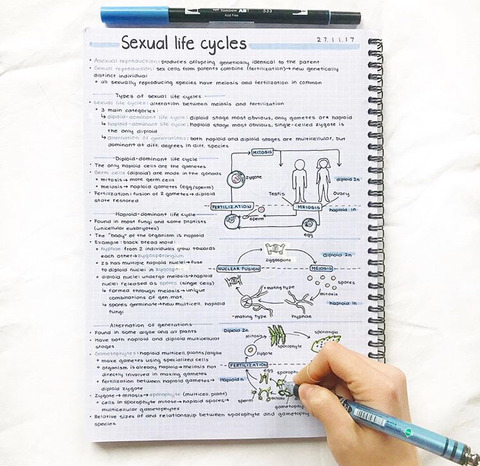 Sexual life cycles
27.11.17
• Asexual reproduction: produces offspring genetically identical to the parent
• Sexual reproduction: sex cells from parents combine (fertilization)→new genetically
distinct individual
• all sexually reproducing species have meiosis and fertilization in common
Types of sexual life cycles
• Sexual life cycles: alteration between meiosis and fertilization
• 3 main categories:
↳ diploid-dominant life cycle: diploid stage most obvious, only gametes are haploid
↳ haploid-dominant life cycle: haploid stage most obvious, single-celled zygote is
the only diploid
↳ alternation of generations: both haploid and diploid stages are multicellular, but
dominant at diff. degrees in diff. species
Diploid-dominant life cycle
• The only haploid cells are the gametes
• Germ cells (diploid) are made in the gonads
• mitosis→ more germ cells
• meiosis→ haploid gametes (egg/sperm)
• Fertilization: fusion of 2 gametes→ diploid
state restored
MITOSIS
zygote
diploid 2n
Testis
Ovary
FERTILIZATION
MEIOSIS
haploid 1n
sperm
egg
Haploid-dominant life cycle
• Found in most fungi and some protists
(unicellular eukaryotes)
• The "body" of the organism is haploid
• Example: black bread mold:
• hyphae from 2 individuals grow towards
each other→zygosporangium
• ZS has multiple haploid nuclei→fuse
to diploid nuclei in zygospore
• diploid nuclei undergo meiosis→haploid
nuclei released as spores (single cells)
↳ formed through meiosis→ unique
combinations of gen. mat.
↳ spores germinate→new multicell. haploid
fungi
zygospore
Diploid 2n
NUCLEAR FUSION
MEIOSIS
spores
mitosis
mating type
haploid 1n
mating type
hyphae
Alternation of generations
• Found in some algae and all plants
• Have both haploid and diploid multicellular
stages
• Gametophytes: haploid multicell. plants/algae
• make gametes using specialized cells
• organism is already haploid→meiosis not
directly involved in making gametes
• fertilization between haploid gametes→
diploid zygote
• Zygote→mitosis→sporophyte (multicell. plant)
• cells in sporophyte meiosis→ haploid spores→
multicellular gametophytes
• Relative sizes of and relationship between sporophyte and gametophyte
species
Diploid 2n
mitosis
sporangia
zygote
sporophyte
FERTILIZATION
Haploid 1n
egg
sperm